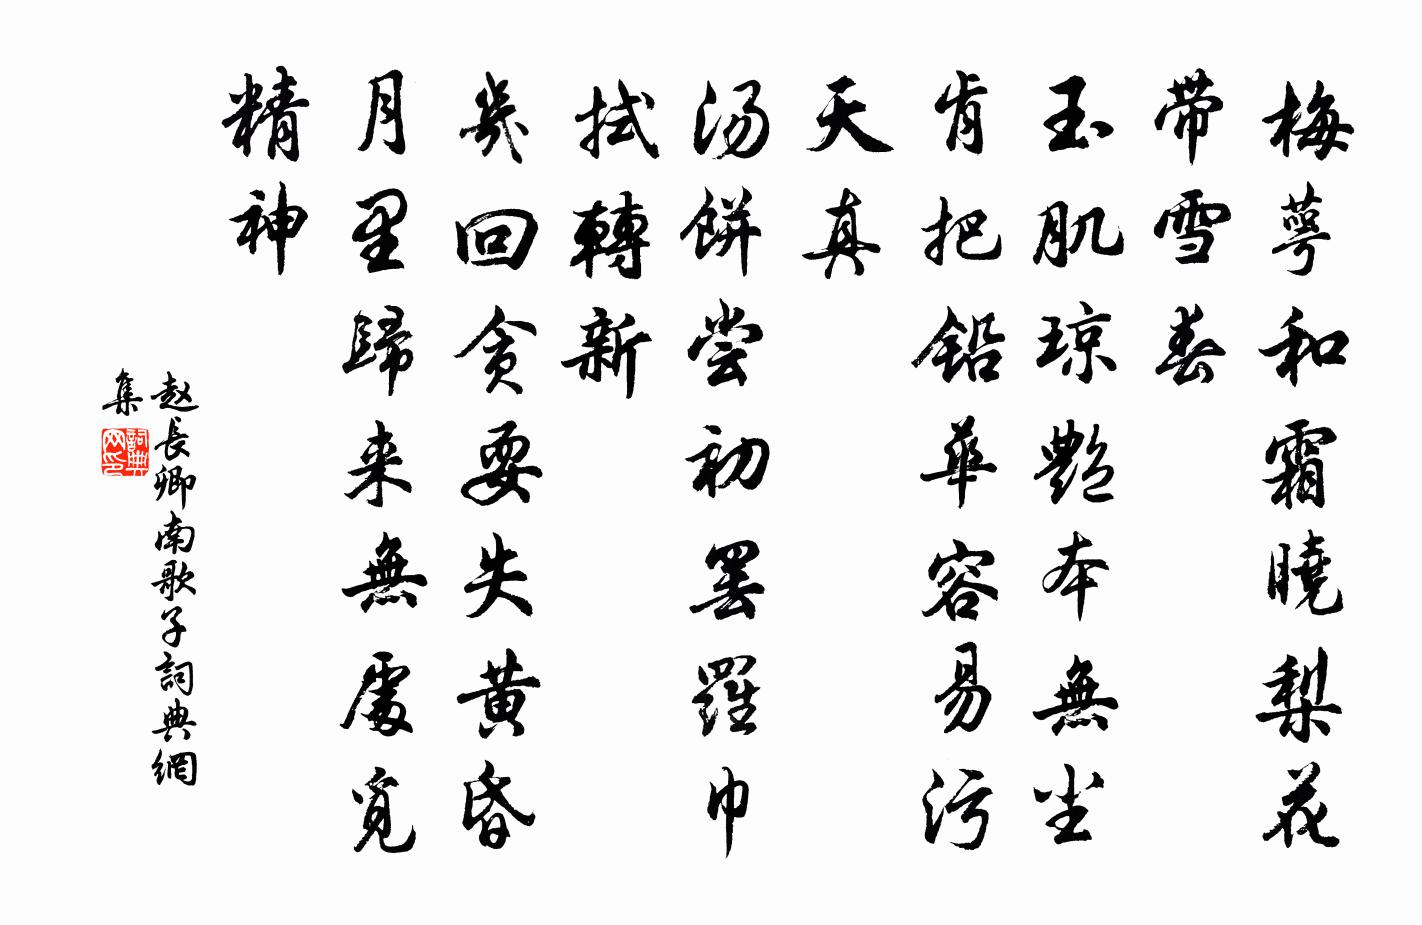 梅萼和霜曉梨花
带雪春
玉肌琼艷本無尘
肯把铅華容易污
天真
汤餅尝初罢羅巾
拭轉新
幾回贪耍失黄昏
月里歸来無處覓
精神
赵長卿南歌子詞典網
集
詞典
网印